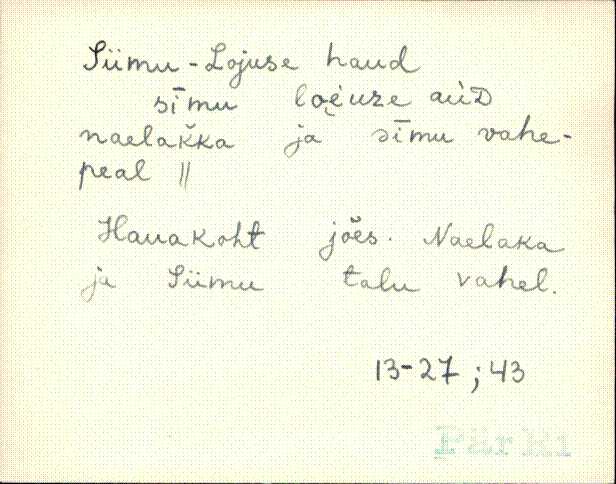 Siimu-Lojuse haud
sīmu loi̯uze aùD
naelaǩka ja sīmu vahe-
peal ||
Hauakoht jões. Naelaka
ja Siimu talu vahel.
13-27; 43